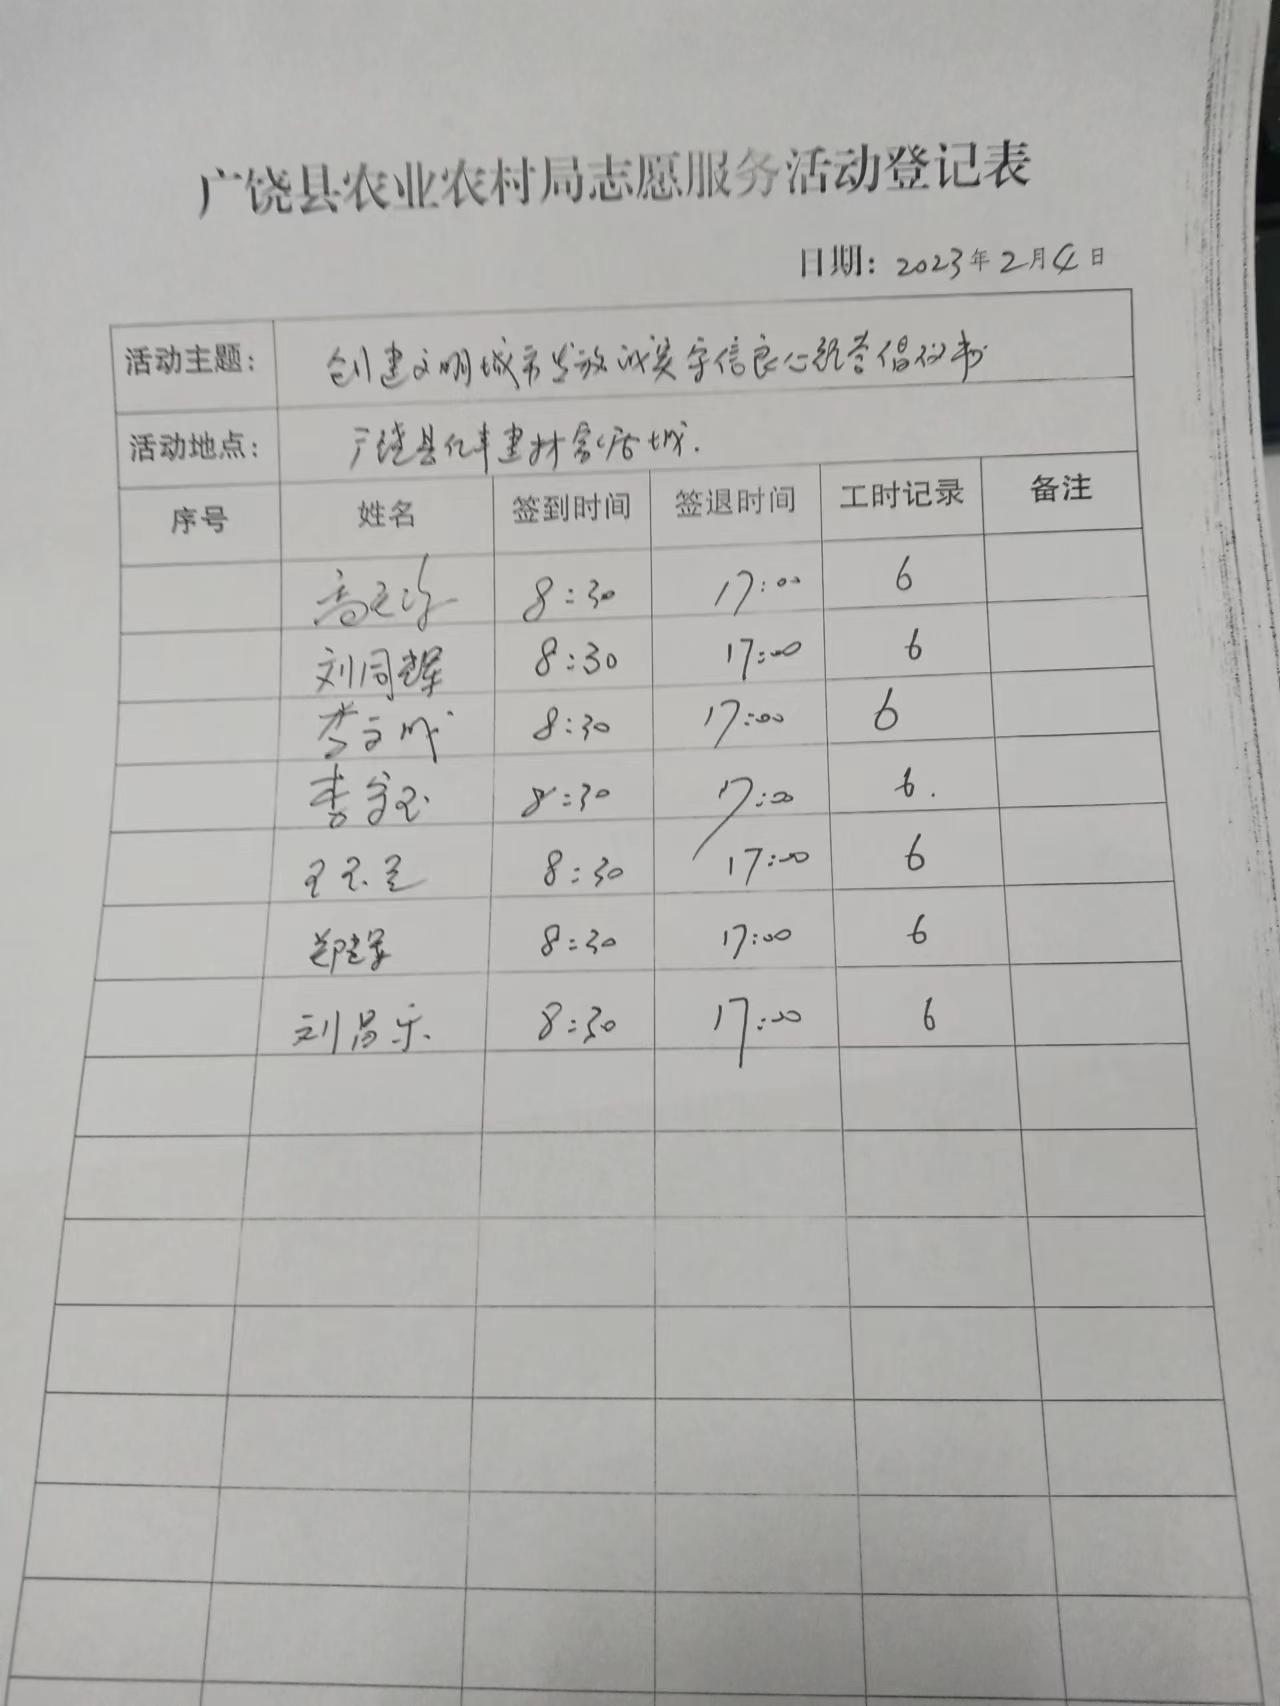 广饶县农业农村局志愿服务活动登记表
日期：2023年2月4日
活动主题： 创建文明城市发放诚实守信良心经营倡议书
活动地点： 广饶县亿丰建材家居城.
序号 姓名 签到时间 签退时间 工时记录 备注
8:30 17:00 6
刘同辉 8:30 17:00 6
李文成 8:30 17:00 6
8:30 17:00 6.
8:30 17:00 6
8:30 17:00 6
刘昌乐 8:30 17:00 6